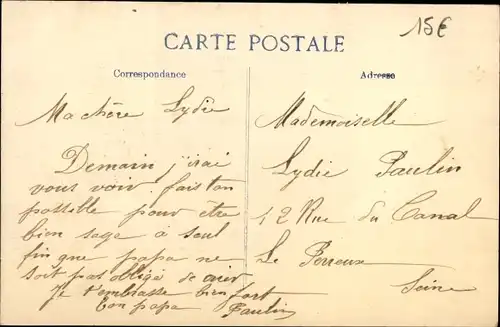 15€
CARTE POSTALE
Correspondance
Adresse
Ma chère Lydie
Demain j'irai
vous voir. fais ton
possible pour être
bien sage à seul
fin que papa ne
soit pas obligé de
je t'embrasse bien fort
ton papa Paulin
Mademoiselle
Lydie Paulin
12 Rue du Canal
Le Perreux
Seine